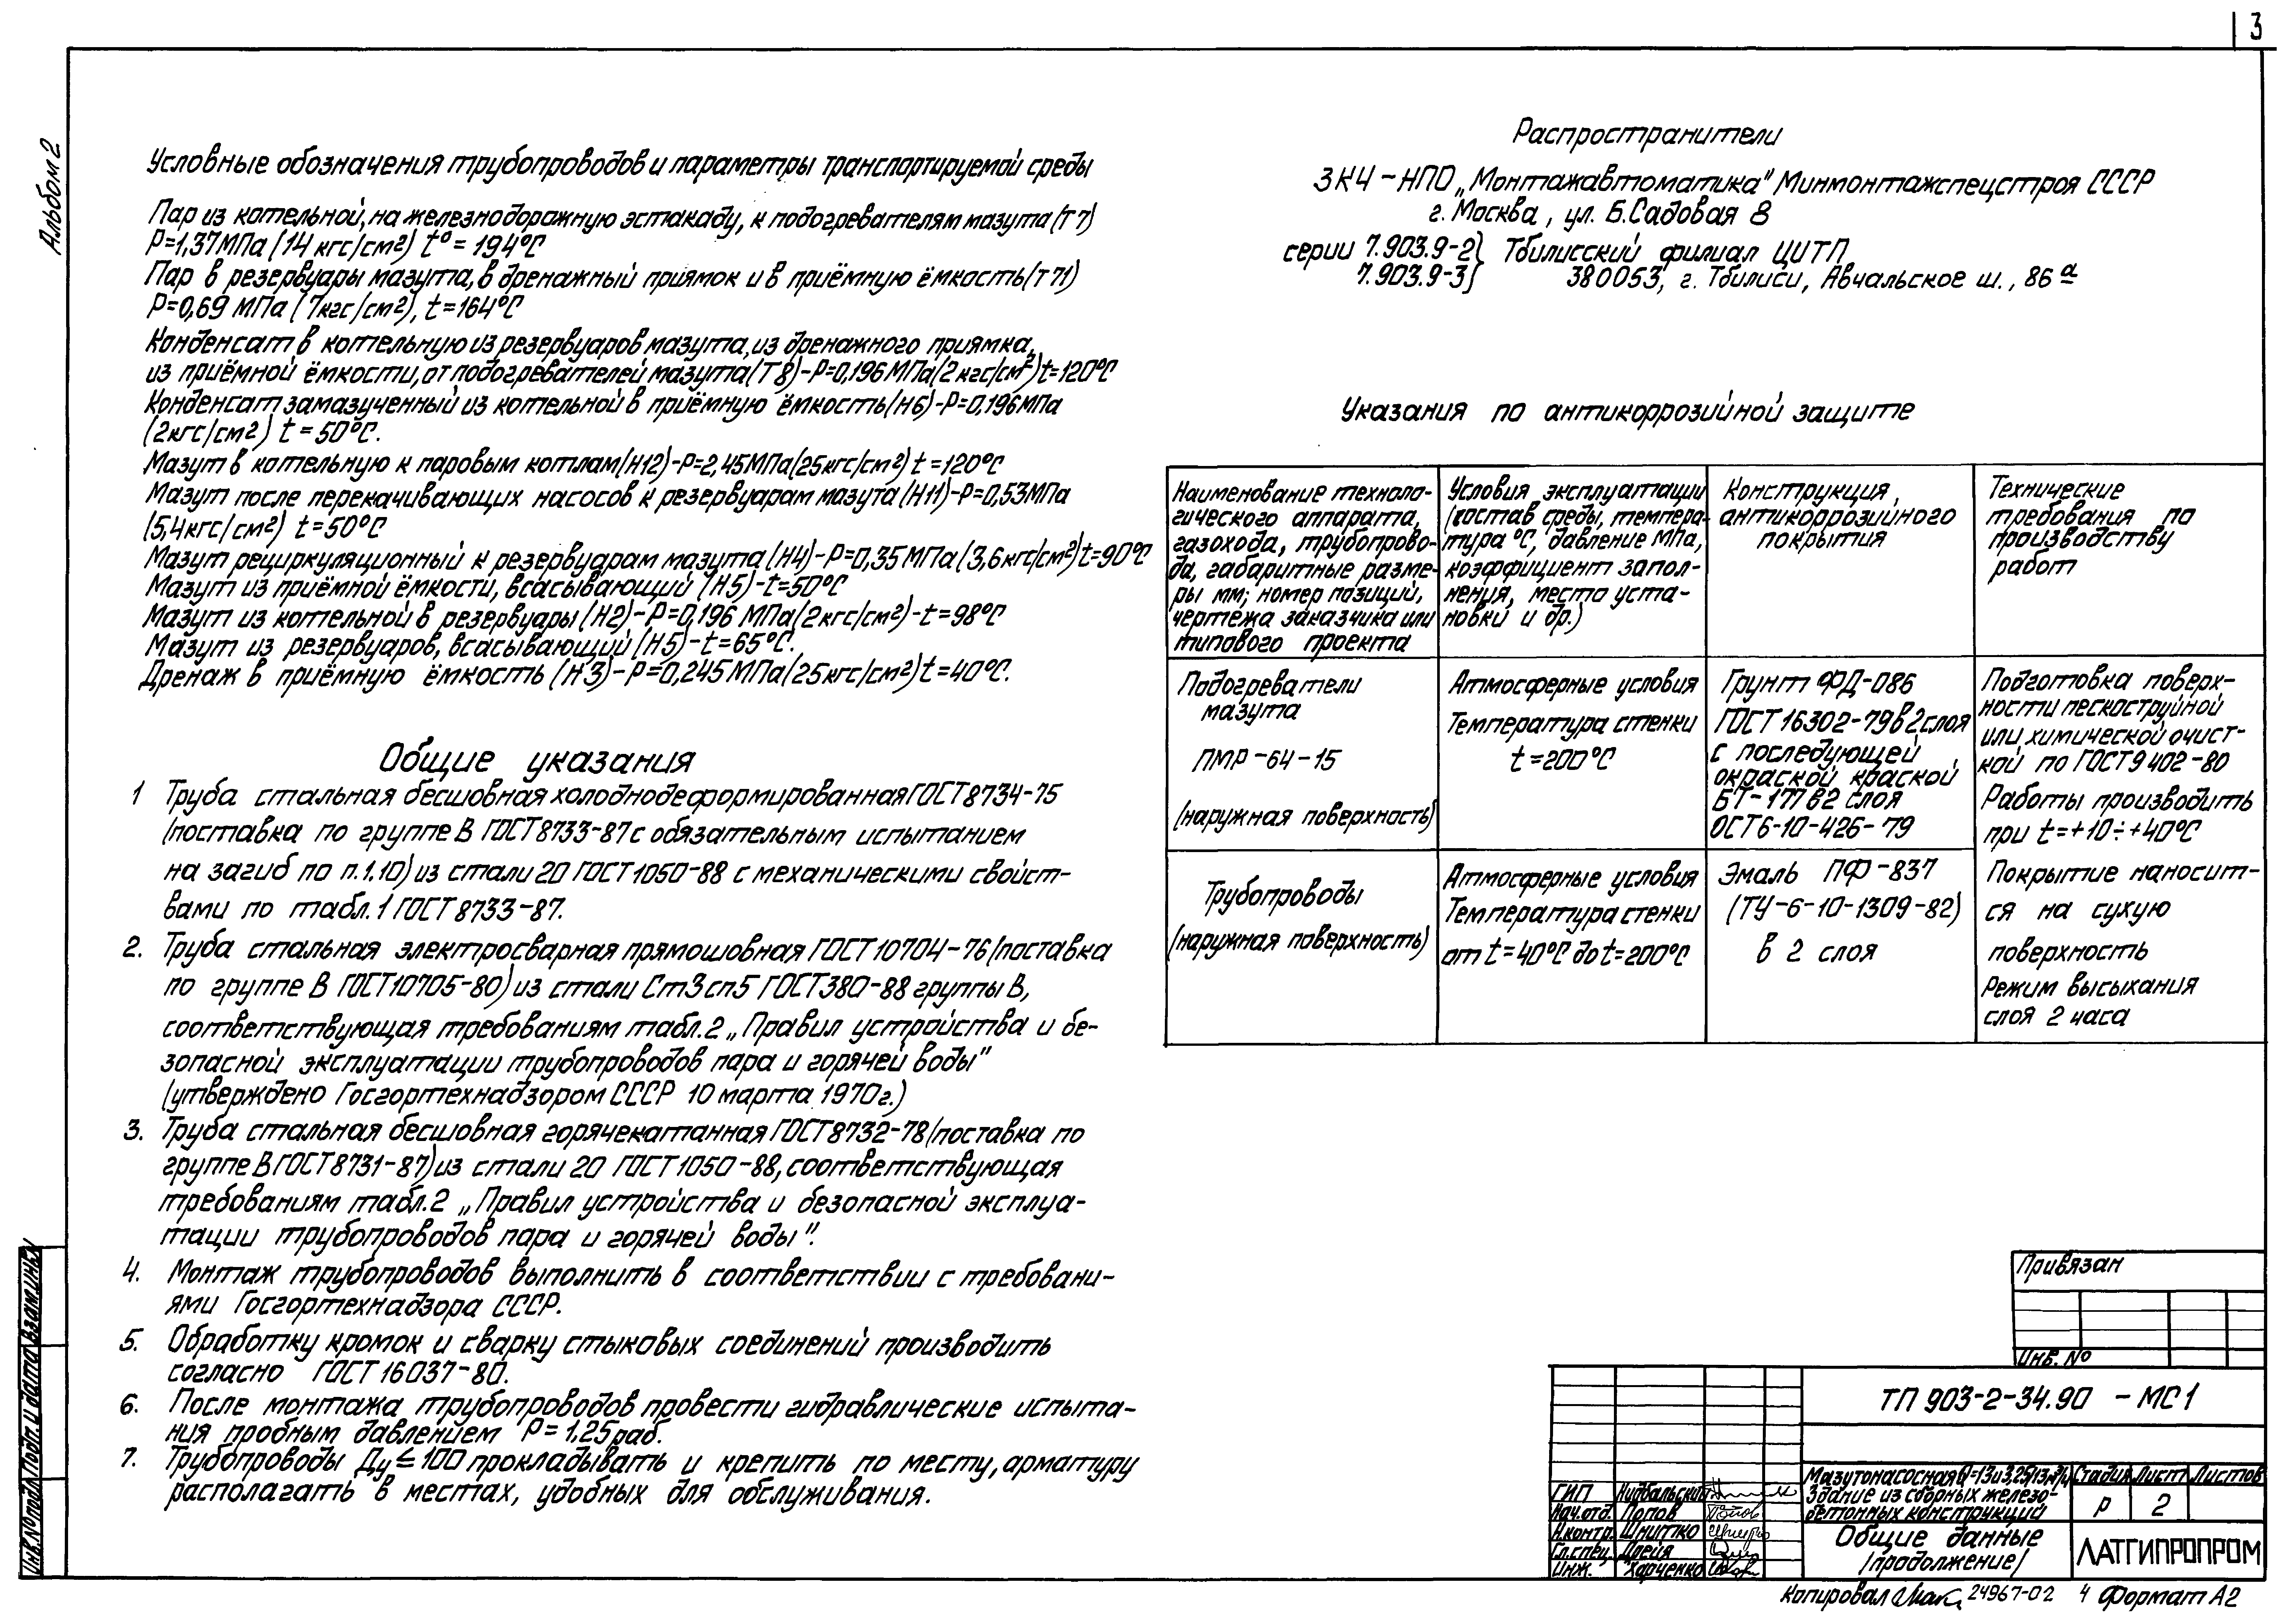 3
Альбом 2
Условные обозначения трубопроводов и параметры транспортируемой среды
Пар из котельной, на железнодорожную эстакаду, к подогревателям мазута (Т7)
Р=1,37МПа (14 кгс/см2) t°= 194°С
Пар в резервуары мазута, в дренажный приямок и в приёмную ёмкость (Т71)
Р=0,69 МПа (7кгс/см2), t=164°С
Конденсат в котельную из резервуаров мазута, из дренажного приямка,
из приёмной ёмкости, от подогревателей мазута (Т8)-Р=0,196 МПа (2кгс/см2) t=120°С
Конденсат замазученный из котельной в приёмную ёмкость (Н6)-Р=0,196МПа
(2кгс/см2) t=50°С.
Мазут в котельную к паровым котлам (Н12)-Р=2,45МПа (25кгс/см2) t=120°С
Мазут после перекачивающих насосов к резервуарам мазута (Н11)-Р=0,53МПа
(5,4кгс/см2) t=50°С
Мазут рециркуляционный к резервуарам мазута (Н4)-Р=0,35МПа (3,6кгс/см2) t=90°С
Мазут из приёмной ёмкости, всасывающий (Н5)-t=50°С
Мазут из котельной в резервуары (Н2)-Р=0,196 МПа (2кгс/см2)-t=98°С
Мазут из резервуаров, всасывающий (Н5)-t=65°С.
Дренаж в приёмную ёмкость (Н3)-Р=0,245МПа (25кгс/см2) t=40°С.
Общие указания
1 Труба стальная бесшовная холоднодеформированная ГОСТ 8734-75
(поставка по группе В ГОСТ 8733-87 с обязательным испытанием
на загиб по п.1.10) из стали 20 ГОСТ 1050-88 с механическими свойст-
вами по табл.1 ГОСТ 8733-87.
2. Труба стальная электросварная прямошовная ГОСТ 10704-76 (поставка
по группе В ГОСТ 10705-80) из стали Ст3сп5 ГОСТ 380-88 группы В,
соответствующая требованиям табл.2 „Правил устройства и бе-
зопасной эксплуатации трубопроводов пара и горячей воды"
(утверждено Госгортехнадзором СССР 10 марта 1970г.)
3. Труба стальная бесшовная горячекатанная ГОСТ 8732-78 (поставка по
группе В ГОСТ 8731-87) из стали 20 ГОСТ 1050-88, соответствующая
требованиям табл.2 „Правил устройства и безопасной эксплуа-
тации трубопроводов пара и горячей воды".
4. Монтаж трубопроводов выполнить в соответствии с требовани-
ями Госгортехнадзора СССР.
5. Обработку кромок и сварку стыковых соединений производить
согласно ГОСТ 16037-80.
6. После монтажа трубопроводов провести гидравлические испыта-
ния пробным давлением Р=1,25 раб.
7. Трубопроводы Ду ≤ 100 прокладывать и крепить по месту, арматуру
располагать в местах, удобных для обслуживания.
Распространители
ЗКЧ-НПО „Монтажавтоматика" Минмонтажспецстроя СССР
г. Москва, ул. Б.Садовая 8
серии 7.903.9-2} Тбилисский филиал ЦИТП
7.903.9-3} 380053, г. Тбилиси, Авчальское ш., 86а
Указания по антикоррозийной защите
Наименование техноло-
гического аппарата,
газохода, трубопрово-
да, габаритные разме-
ры мм; номер позиций,
чертежа заказчика или
типового проекта
Условия эксплуатации
(состав среды, темпера-
тура °С, давление МПа,
коэффициент запол-
нения, место уста-
новки и др.)
Конструкция,
антикоррозийного
покрытия
Технические
требования по
производству
работ
Подогреватели
мазута
ПМР-64-15
(наружная поверхность)
Атмосферные условия
Температура стенки
t=200°С
Грунт ФД-086
ГОСТ 16302-79 в 2 слоя
с последующей
окраской краской
БТ-177 в 2 слоя
ОСТ6-10-426-79
Подготовка поверх-
ности пескоструйной
или химической очист-
кой по ГОСТ 9402-80
Работы производить
при t=+10÷+40°С
Трубопроводы
(наружная поверхность)
Атмосферные условия
Температура стенки
от t=40°С до t=200°С
Эмаль ПФ-837
(ТУ-6-10-1309-82)
в 2 слоя
Покрытие наносит-
ся на сухую
поверхность
Режим высыхания
слоя 2 часа
Привязан
Инв. №
ТП 903-2-34.90 -МС1
Мазутонасосная Q=13 и 3,25/13 м3/ч
Здание из сборных железо-
бетонных конструкций
Стадия Лист Листов
Р 2
Общие данные
(продолжение)
ЛАТГИПРОПРОМ
ГИП Нидбальский
Нач.отд. Попов
Н.контр. Шнитко
Гл.спец. Дрейя
Инж. Харченко
Инв.№ подл. Подп. и дата Взам.инв.№
Копировал 24967-02 4 Формат А2